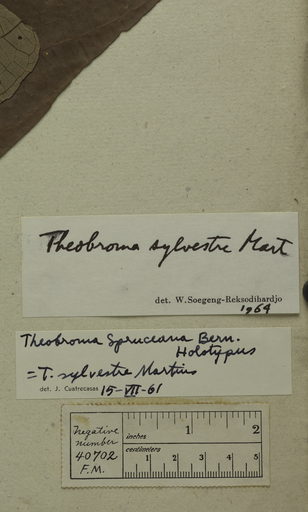 Theobroma sylvestre Mart
det. W. Soegeng-Reksodihardjo
1964
Theobroma Spruceana Bern.
Holotypus
= T. sylvestre Martius
det. J. Cuatrecasas 15-VII-61
Negative
number
40702
F.M.
inches 1 2
centimeters 1 2 3 4 5